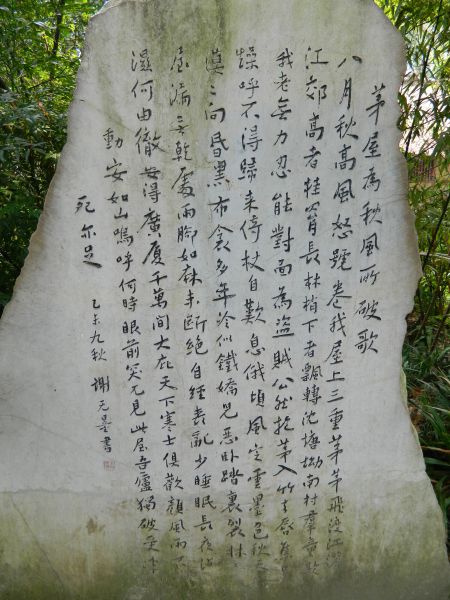 茅屋為秋風所破歌
八月秋高風怒號卷我屋上三重茅茅飛渡江灑
江郊高者挂罥長林梢下者飄轉沈塘坳南村羣童欺
我老無力忍能對面為盜賊公然抱茅入竹去唇焦口
燥呼不得歸來倚杖自歎息俄頃風定雲墨色秋天
漠〻向昏黑布衾多年冷似鐵嬌兒惡臥踏裏裂牀
屋漏無乾處雨腳如麻未斷絕自經喪亂少睡眠長夜沾
濕何由徹安得廣廈千萬間大庇天下寒士俱歡顏風雨不
動安如山嗚呼何時眼前突兀見此屋吾廬獨破受凍
死亦足
乙未九秋 謝无量書